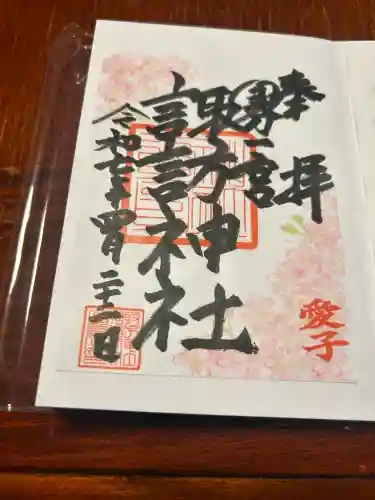 奉拝
一宮
諏訪神社
令和七年四月二十一日
愛子